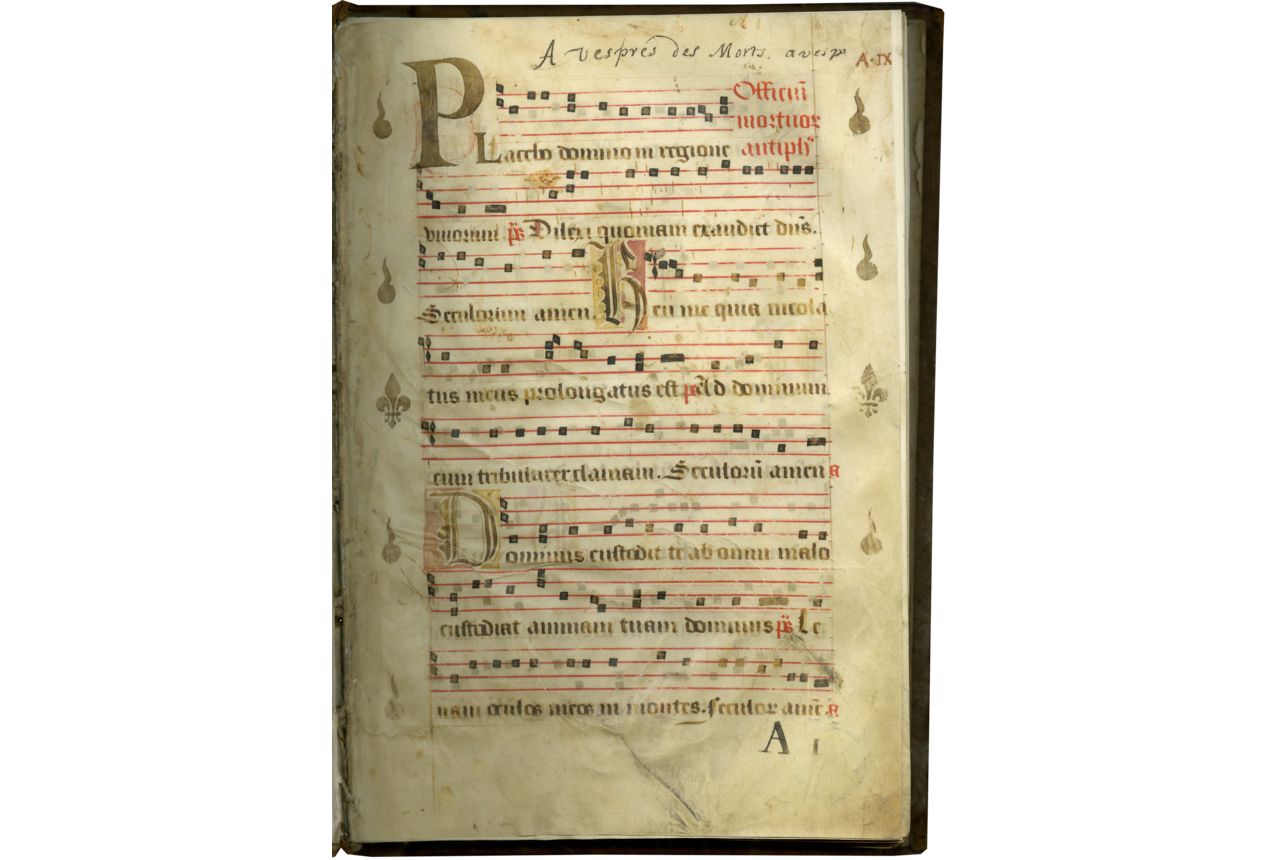 A vespres des Morts. avesp
A·IX
Officiū
mortuor
PLacebo domino in regione antiph
vivorum ps Dilexi quoniam exaudiet dn̄s.
Seculorum amen. Heu me quia incola
tus meus prolongatus est ps Ad dominum
cum tribularer clamavi. Seculorū amen a
Dominus custodit te ab omni malo
custodiat animam tuam dominus ps Le
vavi oculos meos in montes. seculor amē a
A I